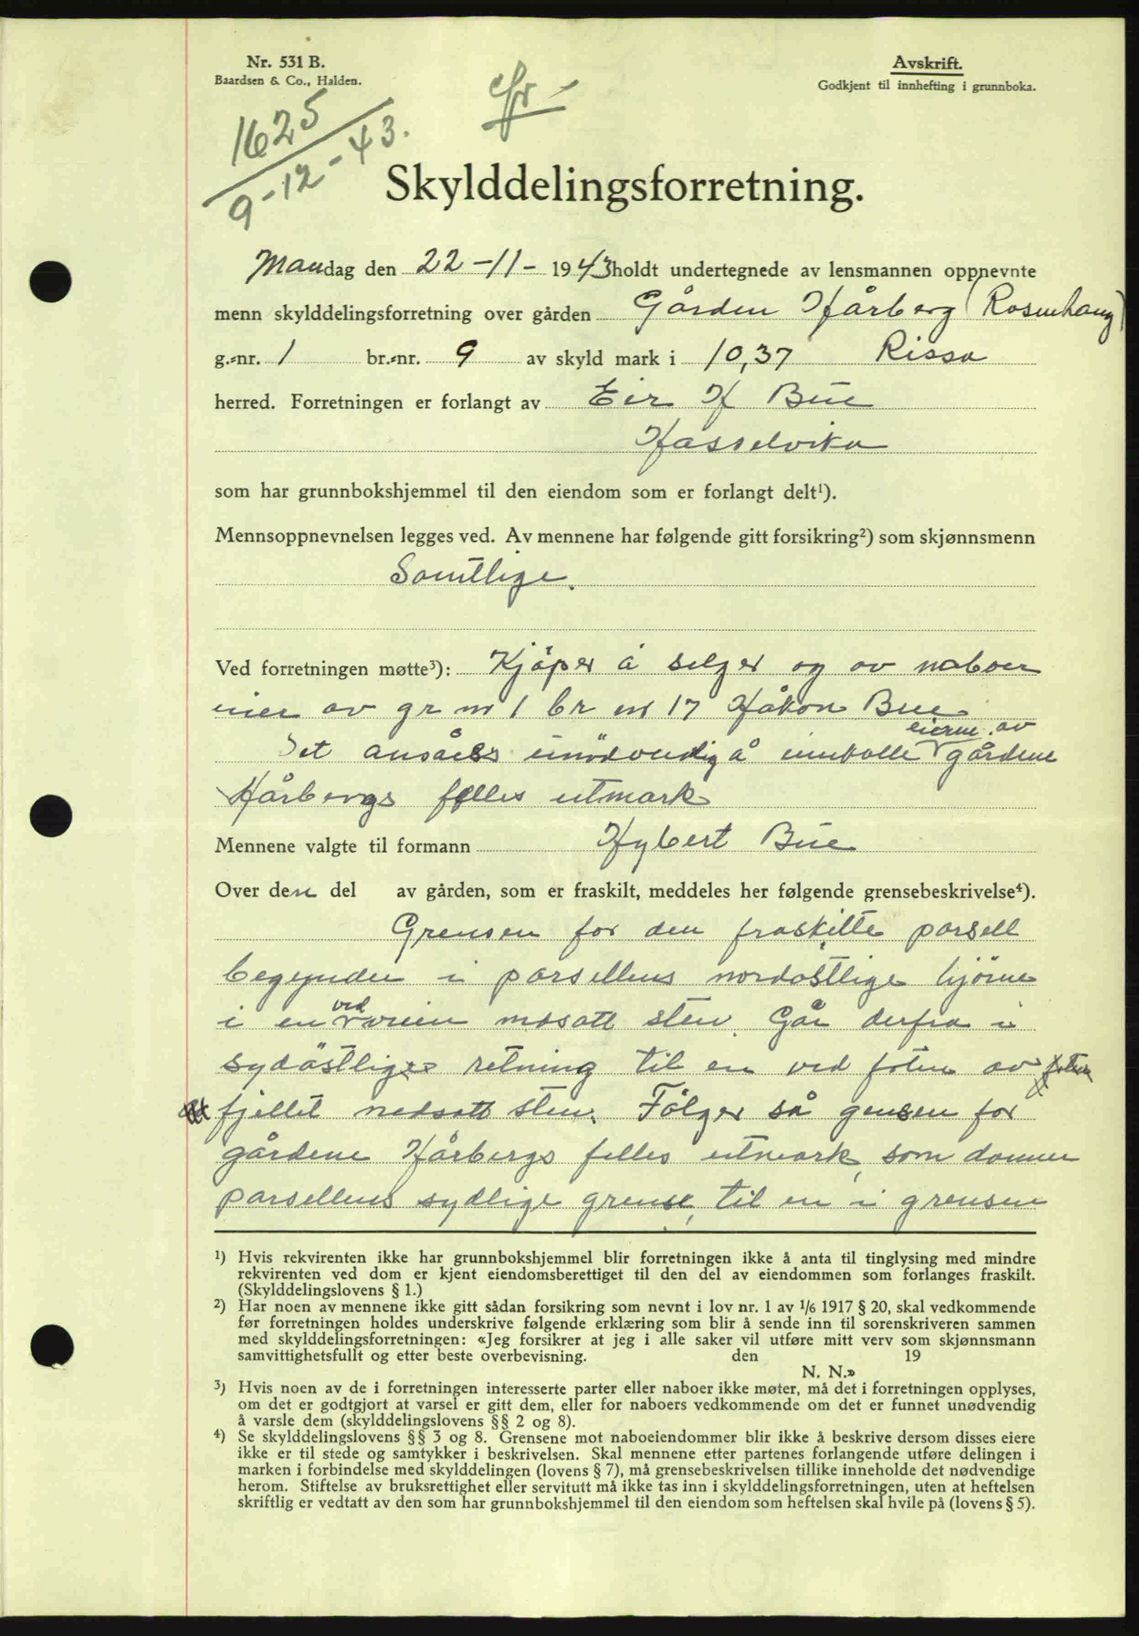 Nr. 531 B.
Baardsen & Co., Halden.
Avskrift.
Godkjent til innhefting i grunnboka.
1625
9-12-43.
Skylddelingsforretning.
Mandag den 22-11- 1943 holdt undertegnede av lensmannen oppnevnte
menn skylddelingsforretning over gården Gården Hårberg (Rosenhaug)
g.-nr. 1 br.-nr. 9 av skyld mark i 10,37 Rissa
herred. Forretningen er forlangt av Eir H Bue
Hasselvika
som har grunnbokshjemmel til den eiendom som er forlangt delt¹).
Mennsoppnevnelsen legges ved. Av mennene har følgende gitt forsikring²) som skjønnsmenn
Samtlige.
Ved forretningen møtte³): Kjøper å selger og av naboer
eier av gr nr 1 br nr 17 Håkon Bue
Det ansåes unödvendig å innkalle eierne av gårdene
Hårbergs felles utmark
Mennene valgte til formann Hybert Bue
Over den del av gården, som er fraskilt, meddeles her følgende grensebeskrivelse⁴).
Grensen for den fraskilte parsell
begynder i parsellens nordöstlige hjörne
i en ved veien nedsatt sten. Går derfra i
sydöstlige retning til en ved foten av
fjellet nedsatt sten. Fölger så gensen for
gårdene Hårbergs felles utmark, som danner
parsellens sydlige grense, til en i grensen
¹) Hvis rekvirenten ikke har grunnbokshjemmel blir forretningen ikke å anta til tinglysing med mindre
rekvirenten ved dom er kjent eiendomsberettiget til den del av eiendommen som forlanges fraskilt.
(Skylddelingslovens § 1.)
²) Har noen av mennene ikke gitt sådan forsikring som nevnt i lov nr. 1 av 1/6 1917 § 20, skal vedkommende
før forretningen holdes underskrive følgende erklæring som blir å sende inn til sorenskriveren sammen
med skylddelingsforretningen: «Jeg forsikrer at jeg i alle saker vil utføre mitt verv som skjønnsmann
samvittighetsfullt og etter beste overbevisning. den 19
N. N.»
³) Hvis noen av de i forretningen interesserte parter eller naboer ikke møter, må det i forretningen opplyses,
om det er godtgjort at varsel er gitt dem, eller for naboers vedkommende om det er funnet unødvendig
å varsle dem (skylddelingslovens §§ 2 og 8).
⁴) Se skylddelingslovens §§ 3 og 8. Grensene mot naboeiendommer blir ikke å beskrive dersom disses eiere
ikke er til stede og samtykker i beskrivelsen. Skal mennene etter partenes forlangende utføre delingen i
marken i forbindelse med skylddelingen (lovens § 7), må grensebeskrivelsen tillike inneholde det nødvendige
herom. Stiftelse av bruksrettighet eller servitutt må ikke tas inn i skylddelingsforretningen, uten at heftelsen
skriftlig er vedtatt av den som har grunnbokshjemmel til den eiendom som heftelsen skal hvile på (lovens § 5).